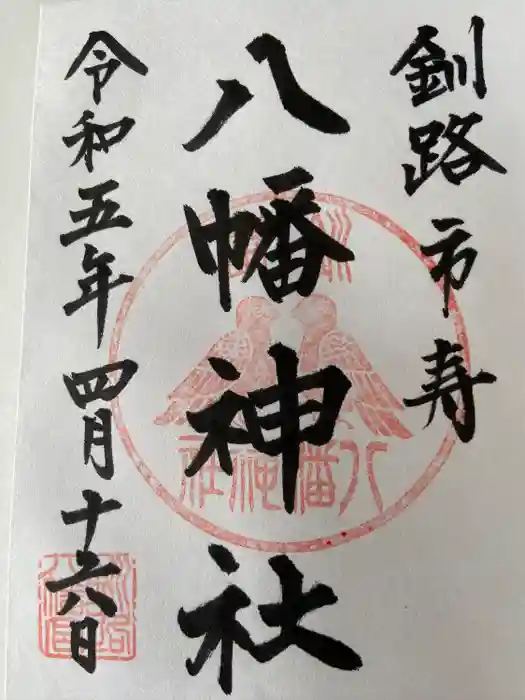 釧路市寿
八幡神社
令和五年四月十六日
八幡神社